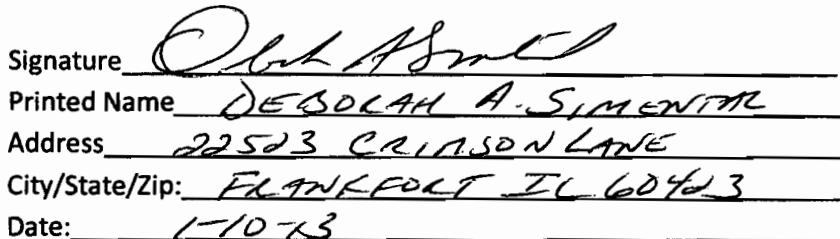 Signature Deborah A Simental
Printed Name DEBORAH A. SIMENTAL
Address 22523 CRIMSON LANE
City/State/Zip: FRANKFORT IL 60423
Date: 1-10-13